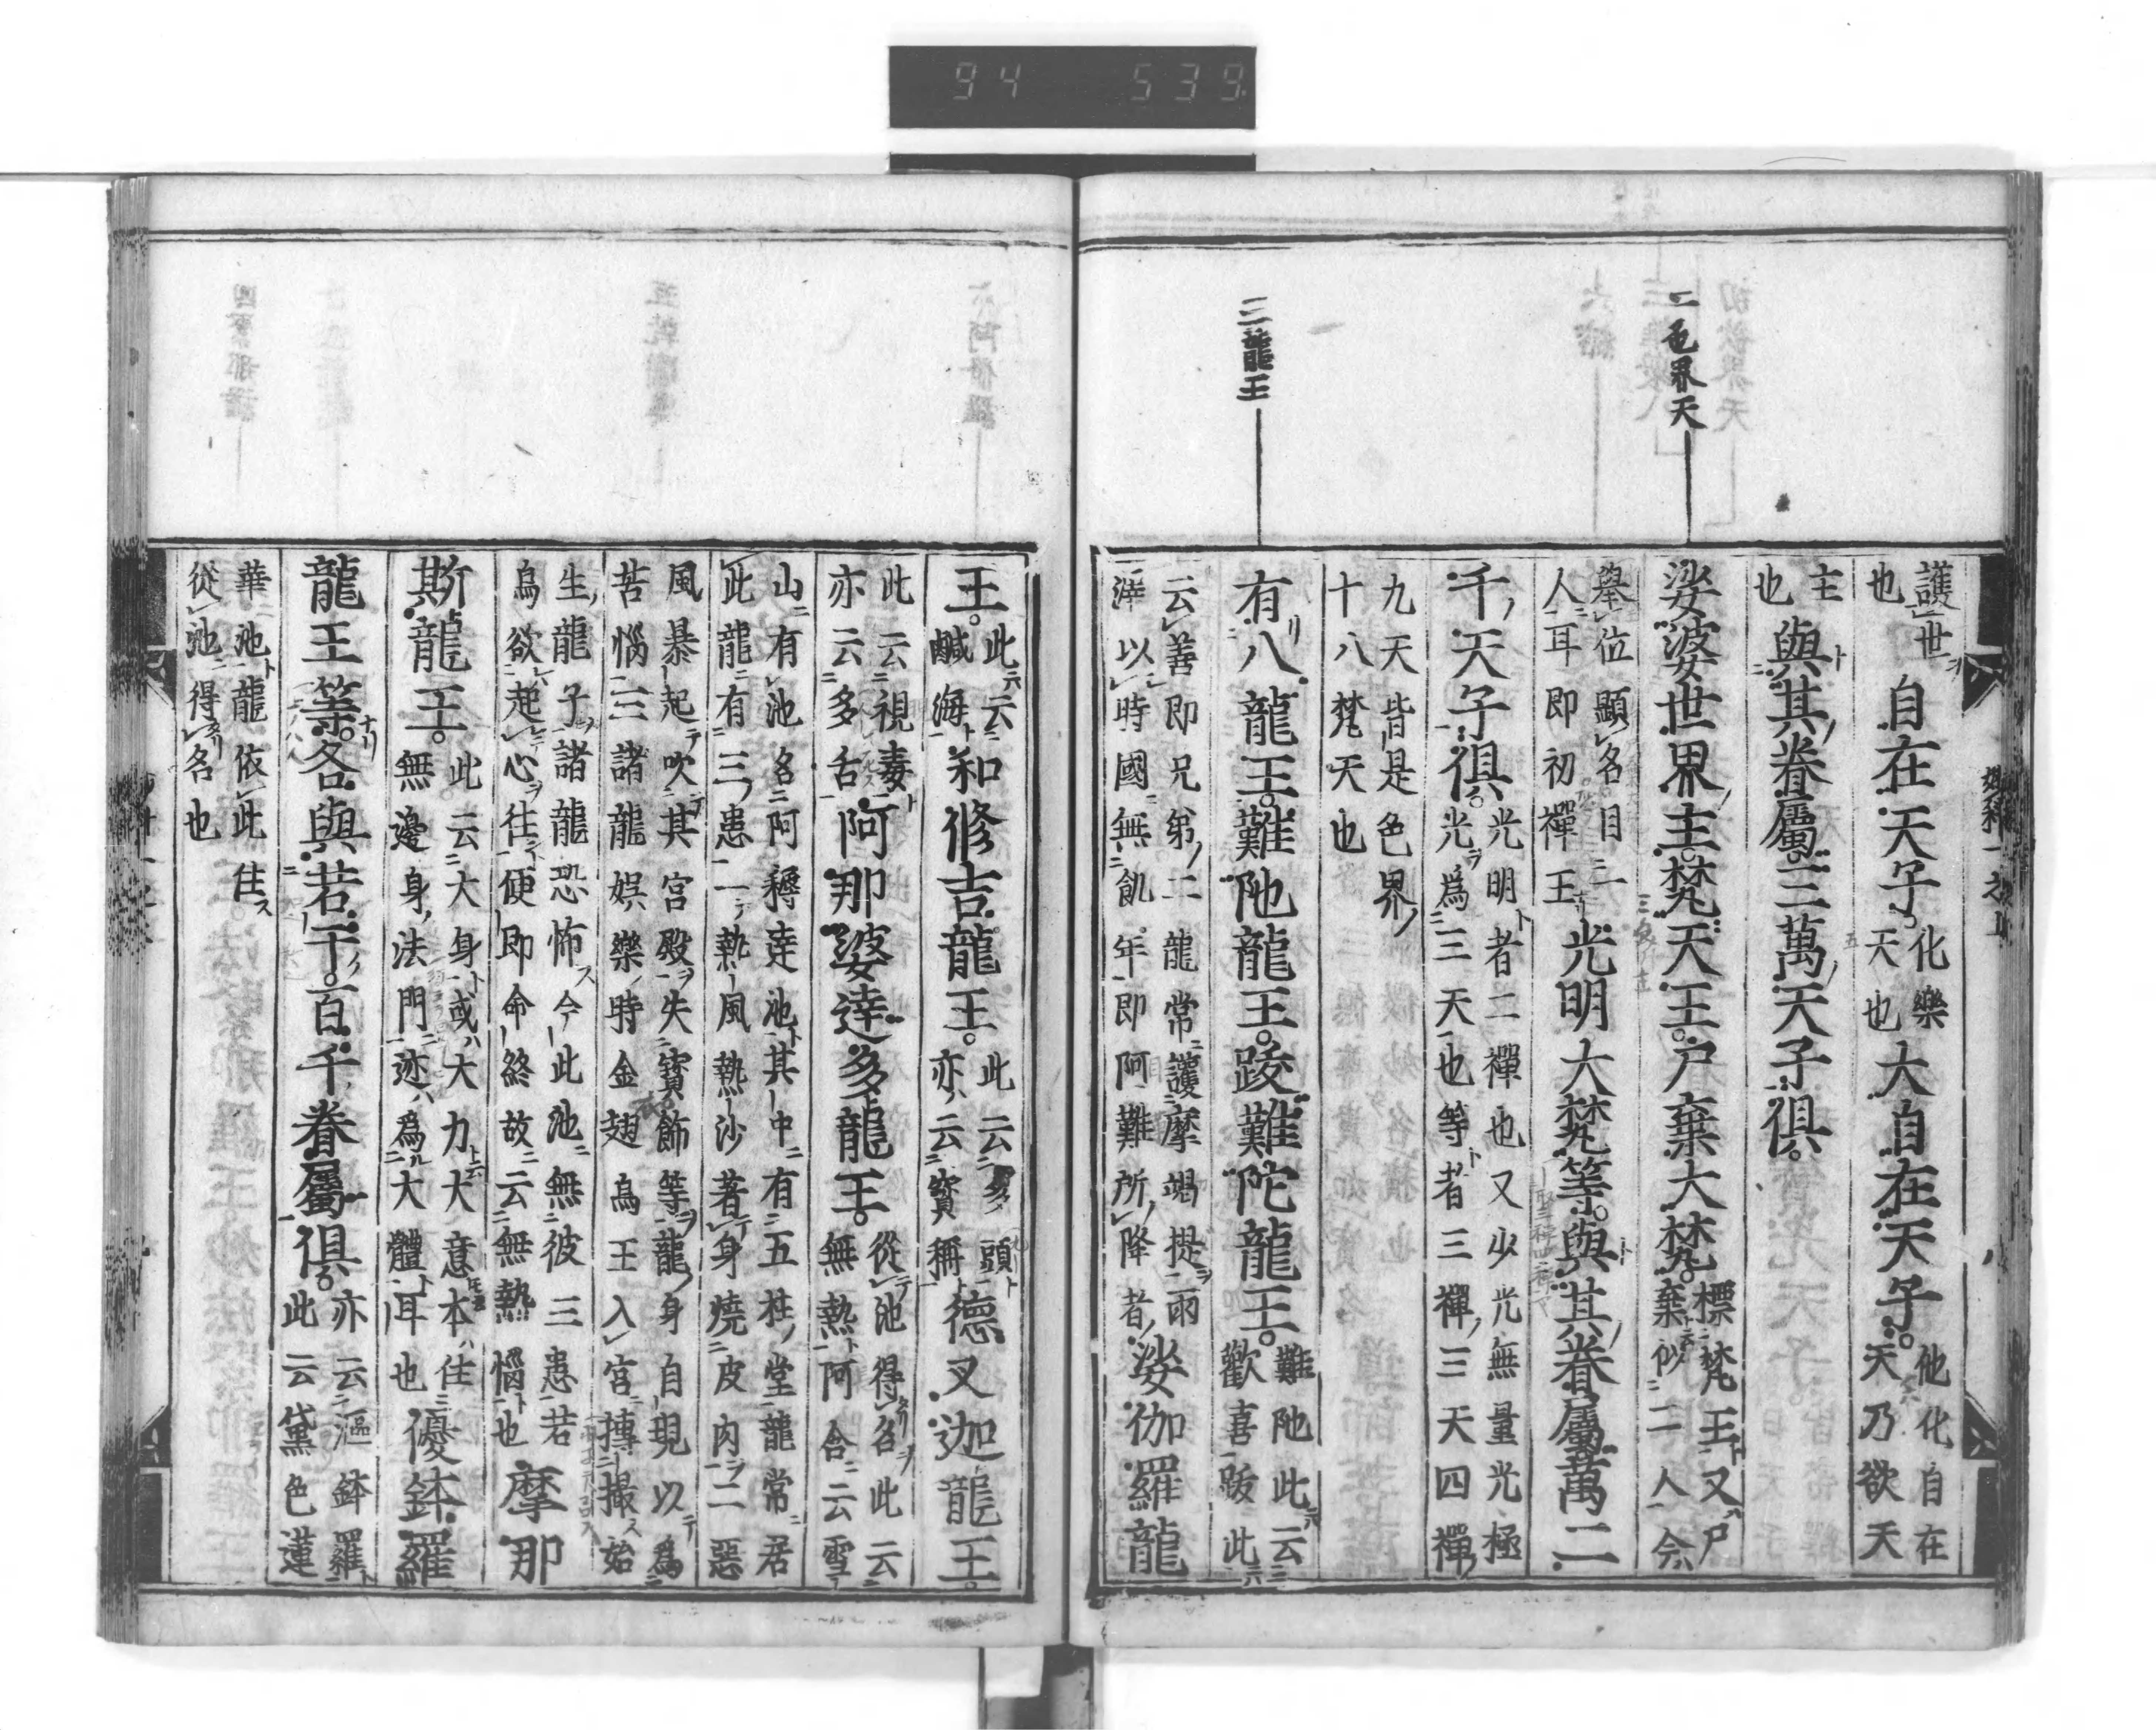 94 539
二色界天
三龍王
護世
也
自在天子。
化樂
天也
大自在天子。
他化自在
天乃欲天
主
也
與其眷屬三萬天子俱。
娑婆世界主。梵天王。尸棄大梵。
標梵王又尸
棄似二人今
舉位顯名目二
人耳即初禪王
光明大梵等。與其眷屬萬二
千天子俱。
光明者二禪也又少光無量光極
光為三天也等者三禪三天四禪
九天皆是色界
十八梵天也
有八龍王。難陁龍王。跋難陀龍王。
難陁此云
歡喜跋此
云善即兄弟二龍常護摩竭提雨
澤以時國無飢年即阿難所降者
娑伽羅龍
王。
此云
鹹海
和修吉龍王。
此云多頭
亦云寶稱
德叉迦龍王。
此云視毒
亦云多舌
阿那婆達多龍王。
從池得名此云
無熱阿含云雪
山有池名阿耨達池其中有五柱堂龍常居
此龍有三患一熱風熱沙著身燒皮肉二惡
風暴起吹其宮殿失寶飾等龍身自現以為
苦惱三諸龍娯樂時金翅鳥王入宮摶撮始
生龍子諸龍恐怖今此池無彼三患若
鳥欲起心往便即命終故云無熱惱也
摩那
斯龍王。
此云大身或大力大意本住
無邊身法門迹為大體耳也
優鉢羅
龍王等。各與若干。百千眷屬俱。
亦云漚鉢羅
此云黛色蓮
華池龍依此住
從池得名也